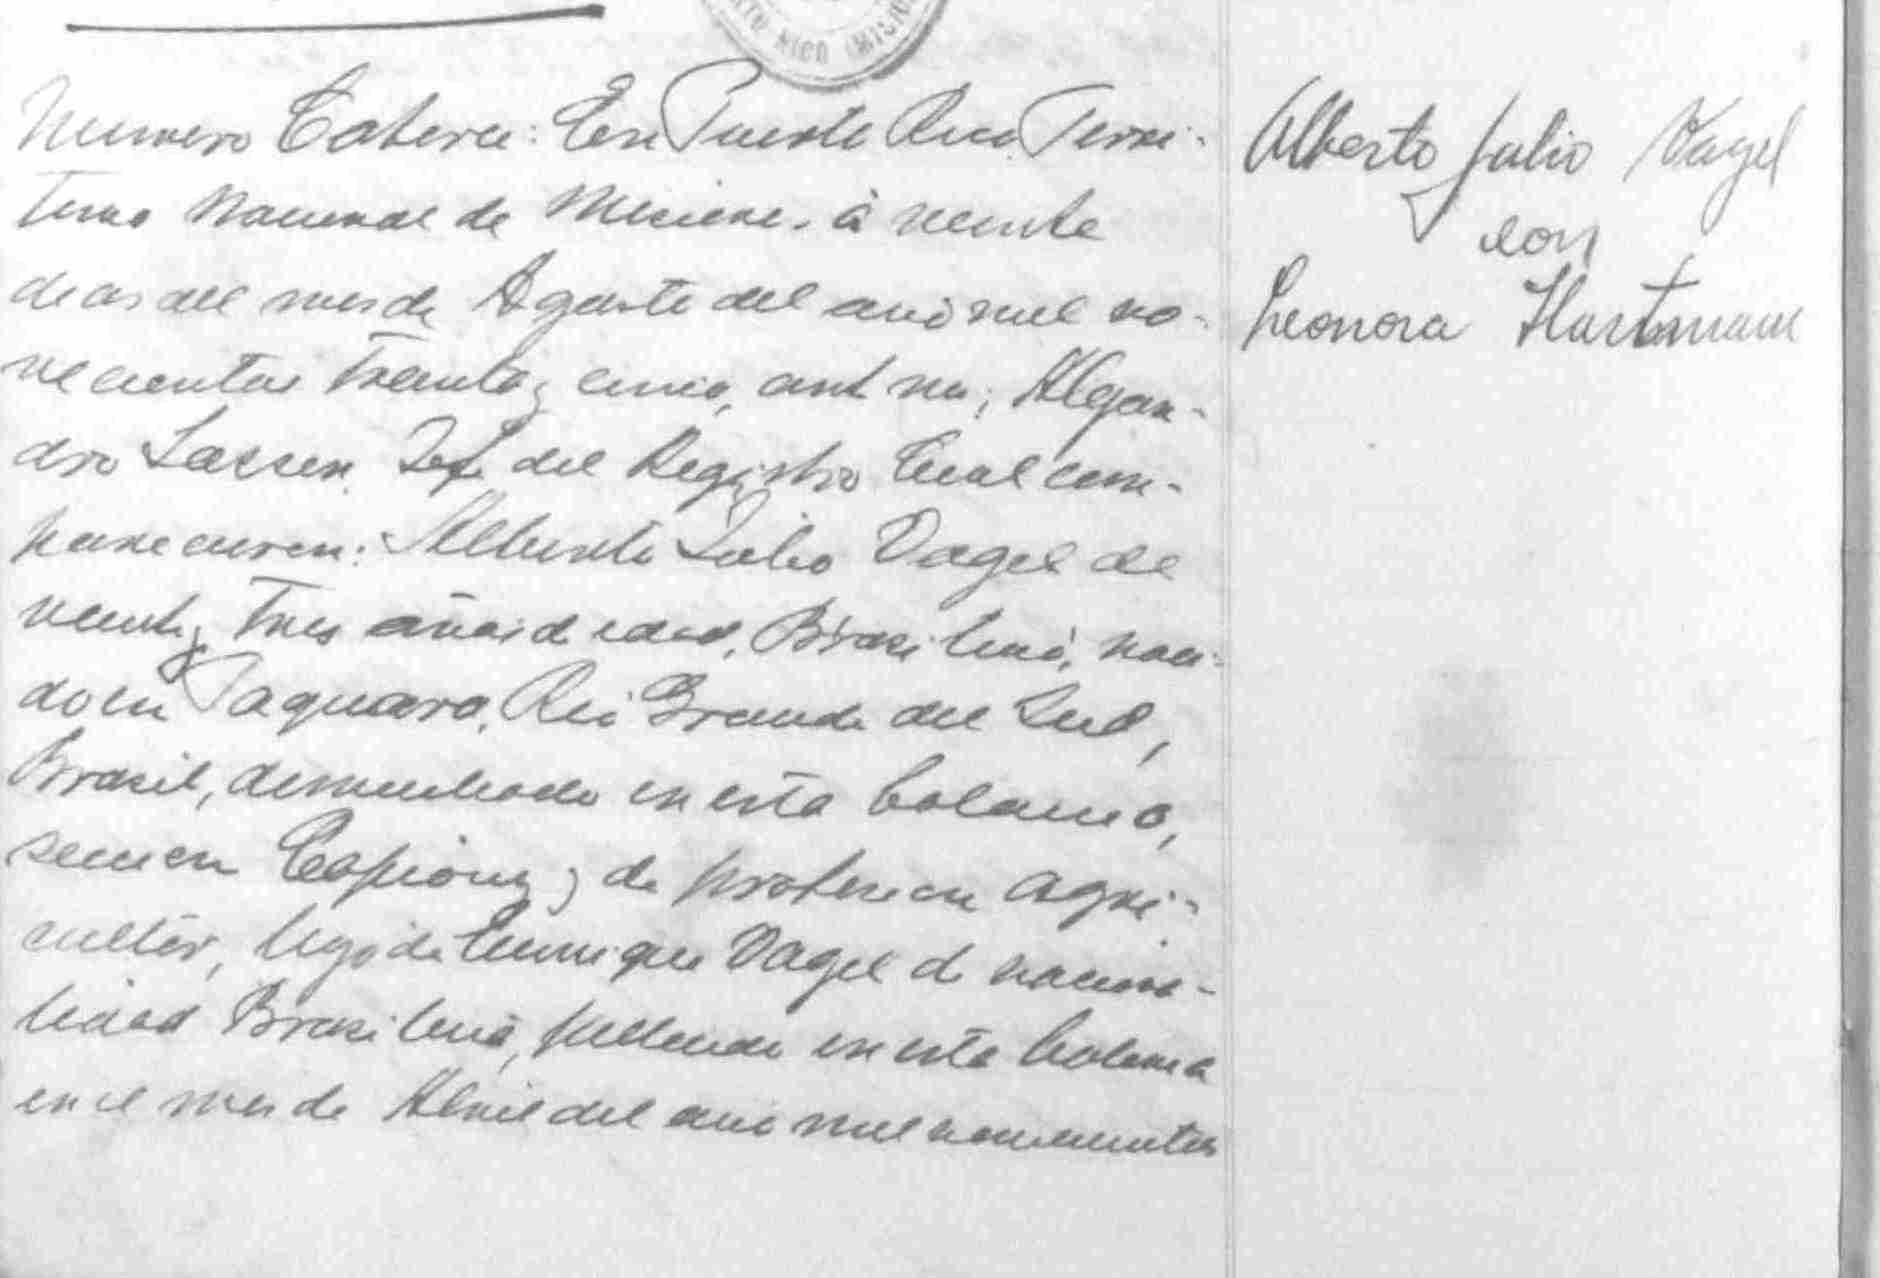 RTO RICO (MISIO
Numero Catorce: En Puerto Rico Terri-
torio Nacional de Misiones à veinte
dias del mes de Agosto del año mil no-
vecientos treinta y cinco, ante mi, Alejan-
dro Lassen Jefe del Registro Civil com-
parecieron: Alberto Julio Vagel de
veinte y tres años de edad, Brasileño, naci-
do en Taquara, Rio Grande del Sud,
Brasil, domiciliado en esta Colonia,
seccion y de profesion agri-
cultor, hijo de Enrique Vagel de naciona-
lidad Brasileña, fallecido en esta Colonia
en el mes de Abril del año mil novecientos
Alberto Julio Vagel
con
Leonora Hartmann